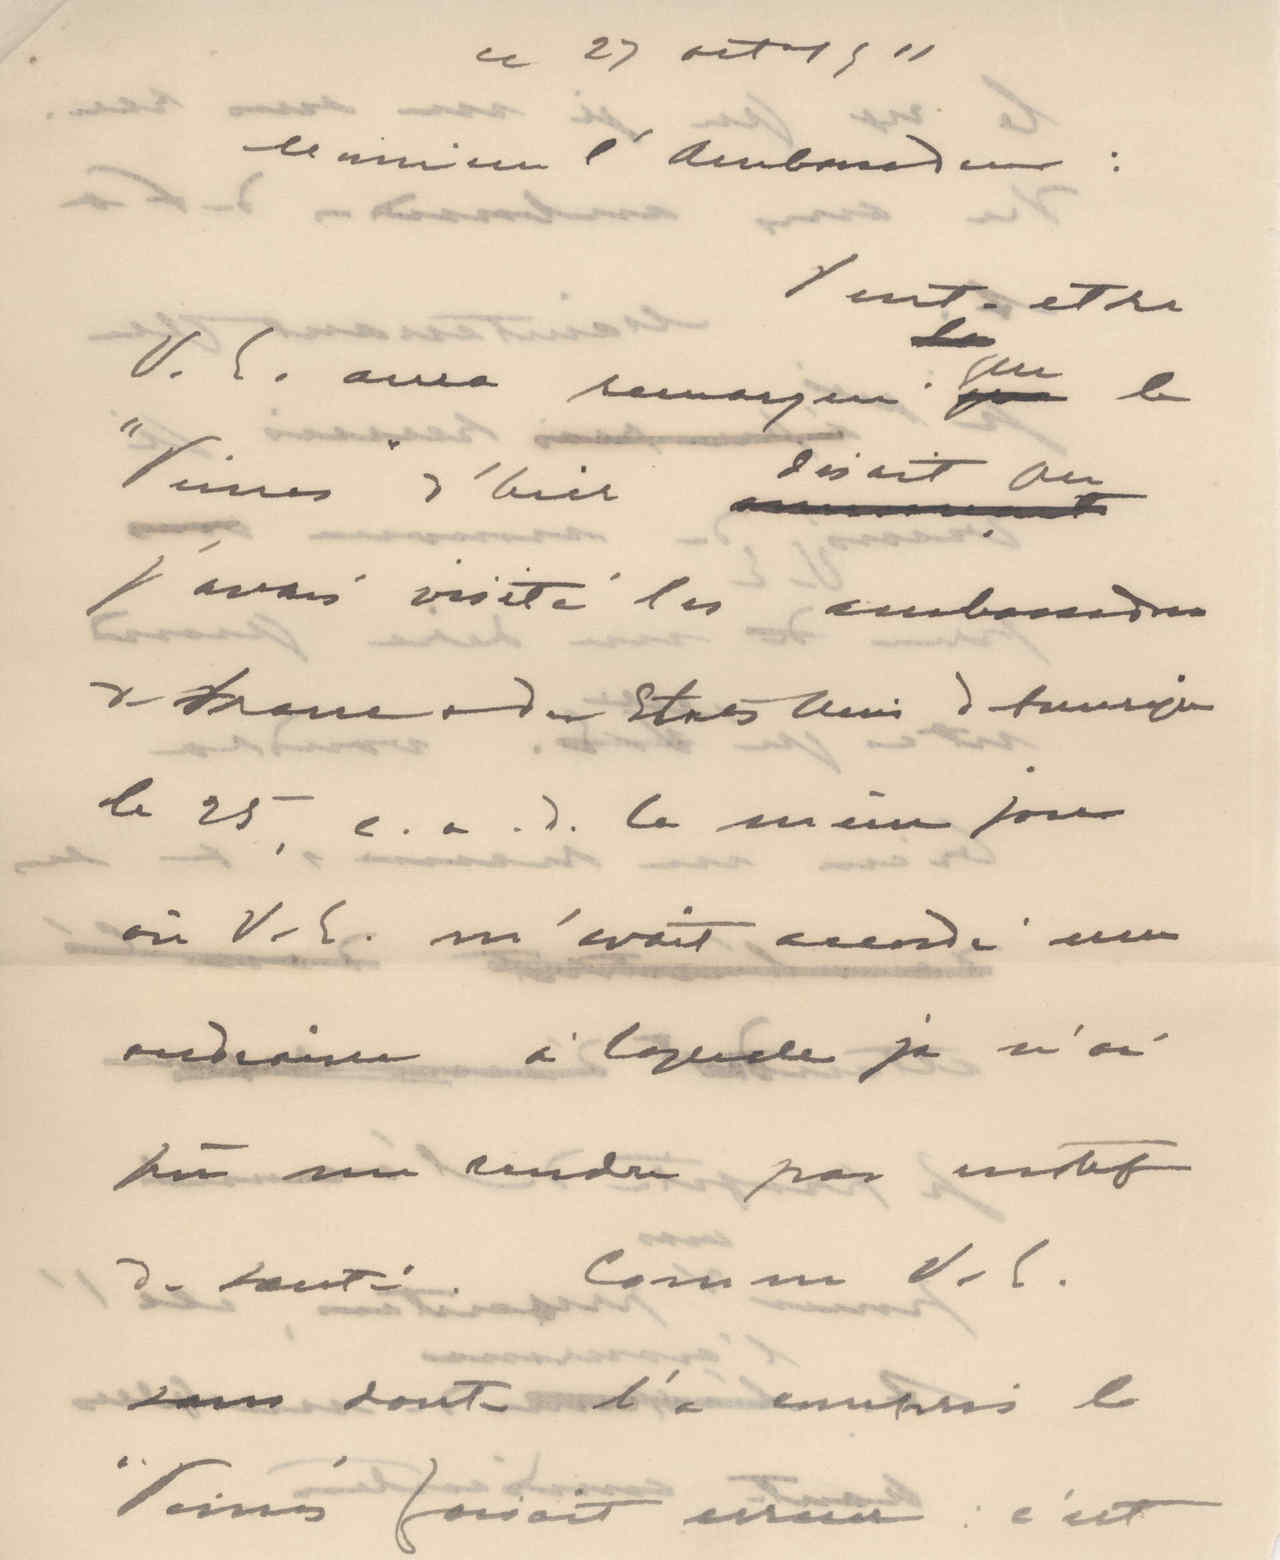 ce 27 oct 1911
Monsieur l'Ambassadeur :
Peut-etre
V. E. aura remarqué que le
"Times" d'hier disait que
j'avais visité les ambassades
de France & des Etats Unis d'Amerique
le 25, c. a. d. le même jour
où V. E. m'avait accordé une
audience à laquelle je n'ai
pû me rendre par motif
de santé. Comme V. E.
sans doute l'a compris le
"Times" faisait erreur : c'est